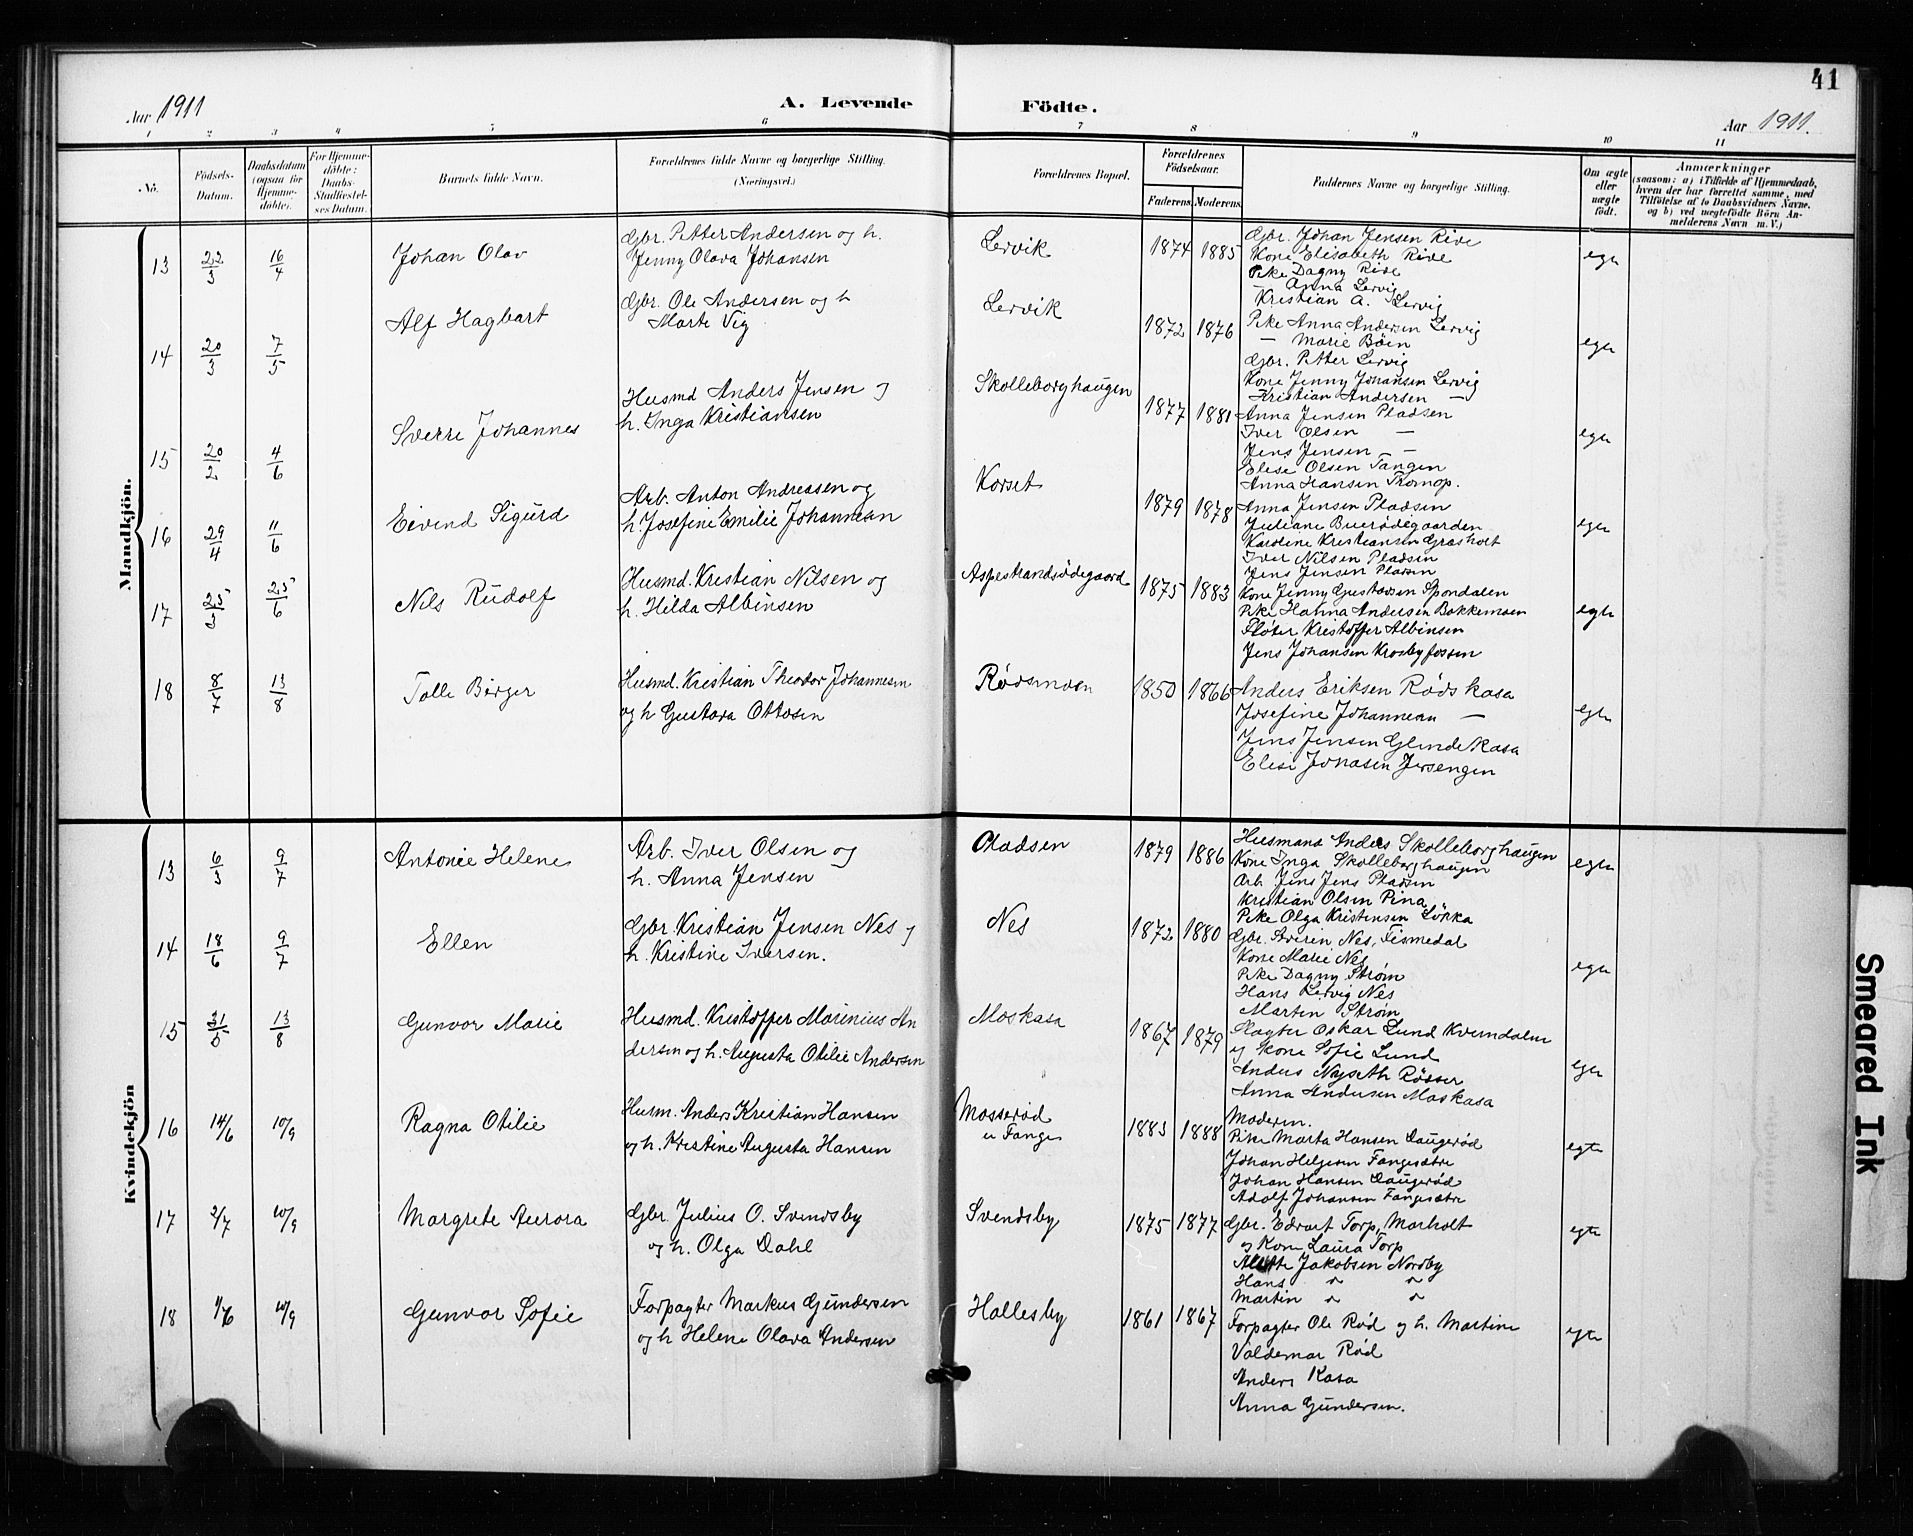 41
Aar 1911
A. Levende Födte.
Aar 1911.
1 2 3 4 5 6 7 8 9 10 11
No.
Födsels-Datum.
Daabsdatum (ogsaa for Hjemme-döbte).
For Hjemme-döbte: Daabs-Stadfæstel-ses Datum.
Barnets fulde Navn.
Forældrenes fulde Navne og borgerlige Stilling.
(Næringsvei.)
Forældrenes Bopæl.
Forældrenes Födselsaar.
Faderens. Moderens.
Faddernes Navne og borgerlige Stilling.
Om ægte eller uægte födt.
Anmærkninger
(saasom: a) i Tilfælde af Hjemmedaab,
hvem der har forrettet samme, med
Tilföielse af to Daabsvidners Navne,
og b) ved uægtefödte Börn An-
melderens Navn m. V.)
Mandkjön.
13 22/3 16/4 Johan Olav
Gbr. Petter Andersen og h.
Jenny Olava Johansen
Lervik 1874 1885
Gbr. Johan Jensen Rive
Kone Elisabeth Rive
Pike Dagny Rive
— Anna Lervig
Kristian A. Lervig
egte
14 20/3 7/5 Alf Hagbart
Gbr. Ole Andersen og h
Marte Vig
Lervik 1872 1876
Pike Anna Andersen Lervig
— Marie Bøen
Gbr. Petter Lervig
Kone Jenny Johansen Lervig
Kristian Andersen —
egte
15 20/2 4/6 Sverre Johannes
Husmd Anders Jensen og
h. Inga Kristiansen
Skolleborghaugen 1877 1881
Anna Jensen Pladsen
Iver Olsen —
Jens Jensen —
Elise Olsen Tangen
Anna Hansen Tromop.
egte
16 29/4 11/6 Eivind Sigurd
Arb. Anton Andreasen og
h. Josefine Emilie Johannesen
Korset 1879 1878
Anna Jensen Pladsen
Juliane Buerødegaarden
Karoline Kristiansen Græsholt
Iver Nilsen Pladsen
Jens Jensen Pladsen
egte
17 25/3 25/6 Nils Rudolf
Husmd. Kristian Nilsen og
h. Hilda Albinsen
Aspestrandsødegaard 1875 1883
Kone Jenny Gustavsen Spondalen
Pike Hanna Andersen Bakkemoen
Fløter Kristoffer Albinsen
Jens Johansen Krosbyfossen
egte
18 8/7 13/8 Tolle Børger
Husmd. Kristian Theodor Johannesen
og h Gustava Ottosen
Rødsmoen 1850 1866
Anders Eriksen Rødskasa
Josefine Johannesen —
Jens Jensen Glendekasa
Elise Jonasen Jersengen
egte
Kvindekjön
13 6/3 9/7 Antonie Helene
Arb. Iver Olsen og
h. Anna Jensen
Pladsen 1879 1886
Husmans Anders Skolleborghaugen
Kone Inga Skolleborghaugen
Arb. Jens Jens Pladsen
Kristian Olsen Pina
Pike Olga Kristensen Løkka
egte
14 18/6 9/7 Ellen
Gbr. Kristian Jensen Nes og
h. Kristine Iversen.
Nes 1872 1880
Gbr. Nes, Fismedal
Kone Marie Nes
Pike Dagny Strøm
Hans Lervig Nes
Martin Strøm
egte
15 31/5 13/8 Gunvor Marie
Husmd. Kristoffer Marinius An
dersen og h. Augusta Otilie Andersen
Moskasa 1867 1879
Slagter Oskar Lund Kverndalen
og Kone Sofie Lund
Anders Nyseth Rødser
Anna Andersen Moskasa
egte
16 14/6 10/9 Ragna Otilie
Husm. Anders Kristian Hansen
og h. Kristine Augusta Hansen
Mosserød
u Fange 1883 1888
Moderen.
Pike Marta Hansen Daugerød
Johan Helgesen Fangesætre
Johan Hansen Daugerød
Adolf Johansen Fangesætre
egte
17 2/7 10/9 Margrete Aurora
Gbr. Julius O. Svendsby
og h. Olga Dahl
Svendsby 1875 1877
Gbr. Edvart Torp, Marholt
og Kone Laura Torp
Jakobsen Nordby
Hans " "
Martin " "
egte
18 1/6 10/9 Gunvor Sofie
Forpagter Markus Gundersen
og h Helene Olava Andersen
Hallesby 1861 1867
Forpagter Ole Rød og h. Martine
Valdemar Rød
Anders Kasa
Anna Gundersen.
egte
Smeared Ink